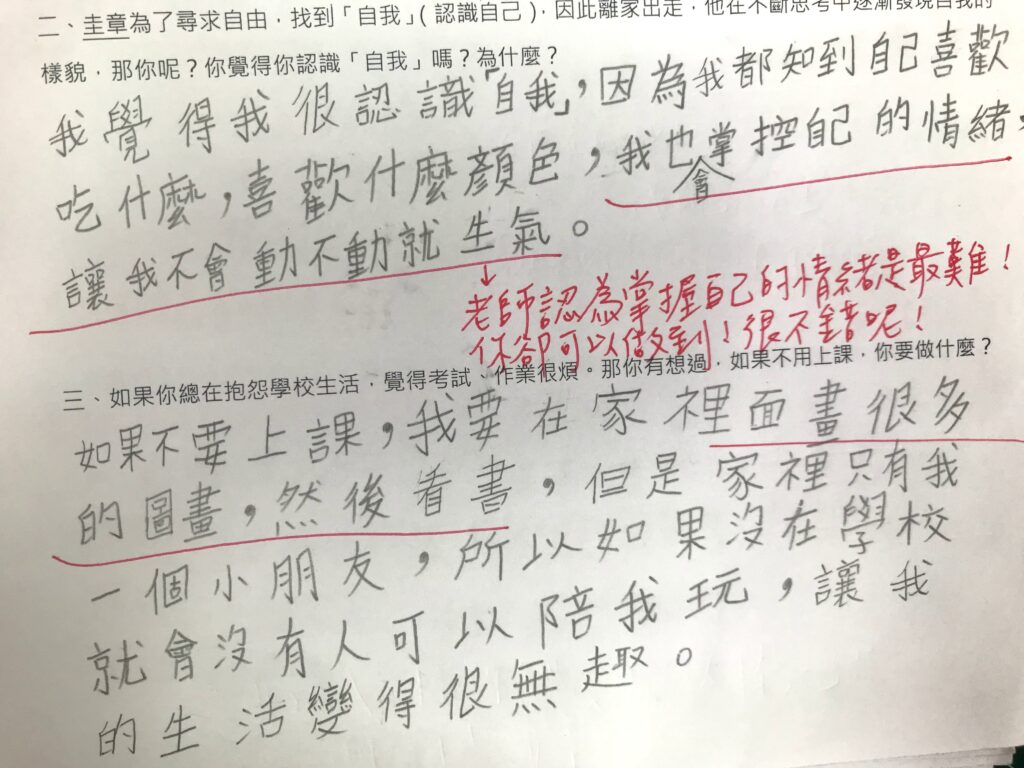 二、圭章為了尋求自由，找到「自我」(認識自己)，因此離家出走，他在不斷思考中逐漸發現自我的
樣貌，那你呢？你覺得你認識「自我」嗎？為什麼？
我覺得我很認識「自我」，因為我都知到自己喜歡
吃什麼，喜歡什麼顏色，我也會掌控自己的情緒，
讓我不會動不動就生氣。
老師認為掌握自己的情緒是最難！
你卻可以做到！很不錯呢！
三、如果你總在抱怨學校生活，覺得考試、作業很煩。那你有想過，如果不用上課，你要做什麼？
如果不要上課，我要在家裡面畫很多
的圖畫，然後看書，但是家裡只有我
一個小朋友，所以如果沒在學校
就會沒有人可以陪我玩，讓我
的生活變得很無趣。